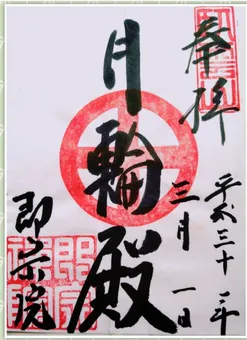 奉拝
平成三十一年
三月一日
月輪殿
即宗院